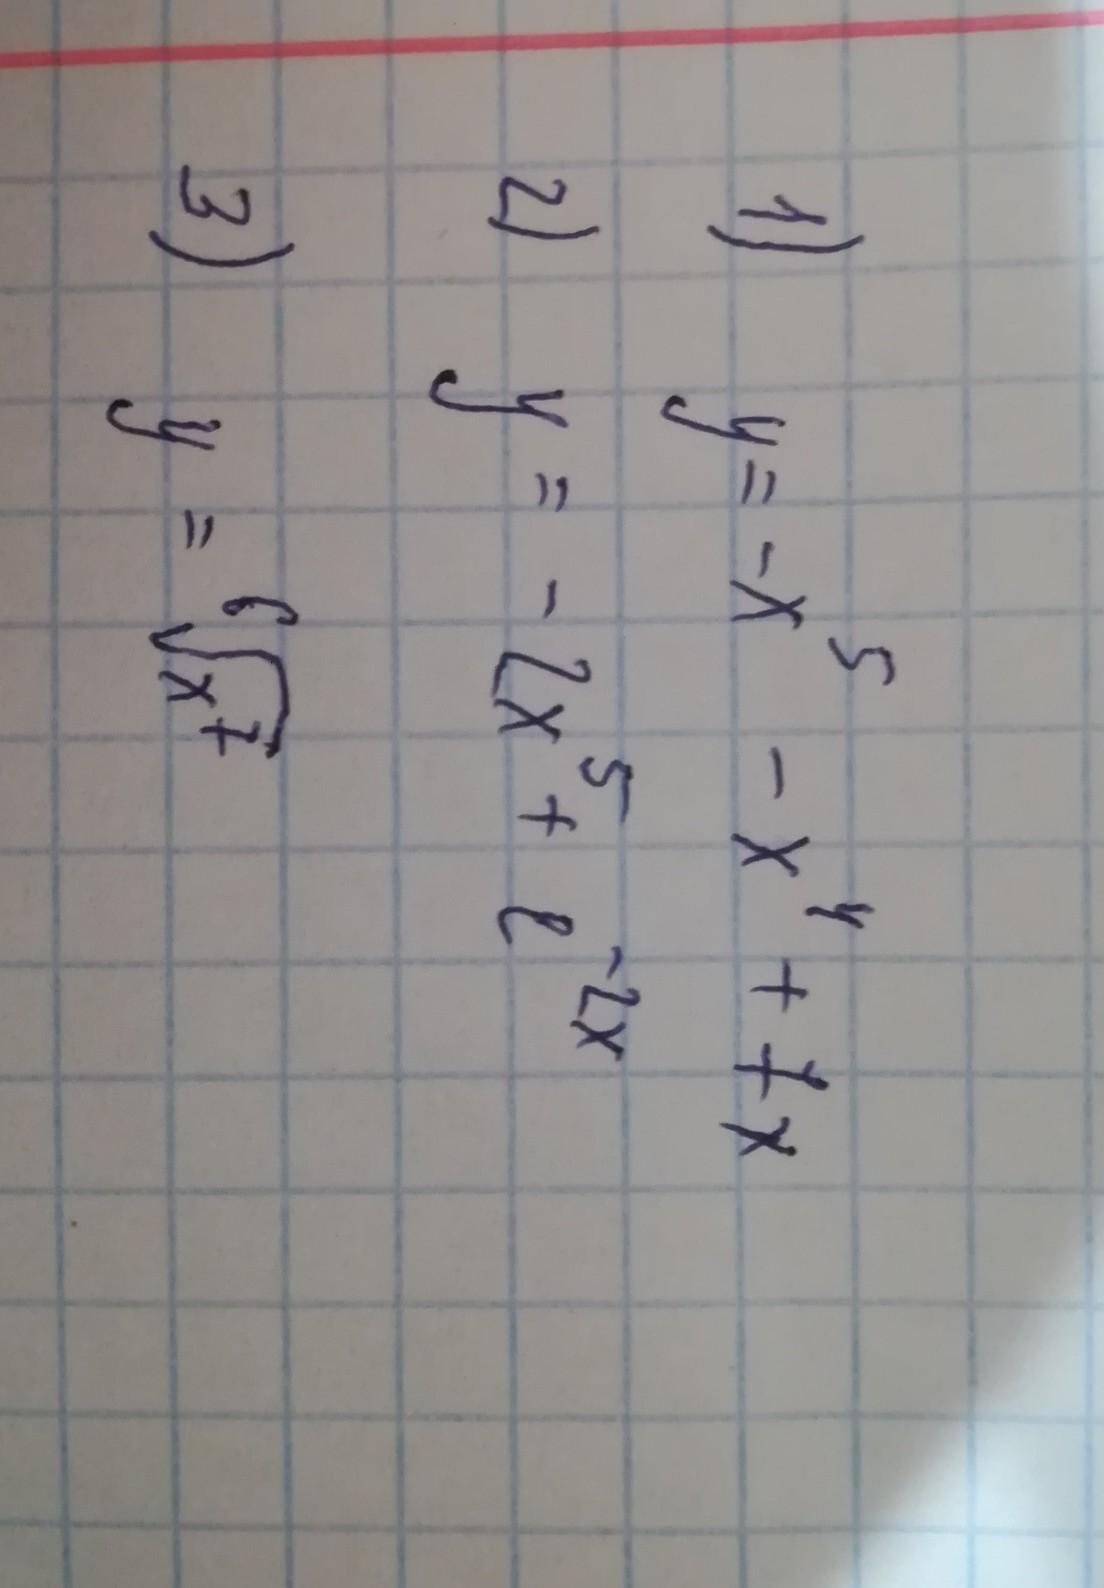 1) y = -x⁵ - x⁴ + 7x
2) y = -2x⁵ + e⁻²ˣ
3) y = ⁶√x⁷